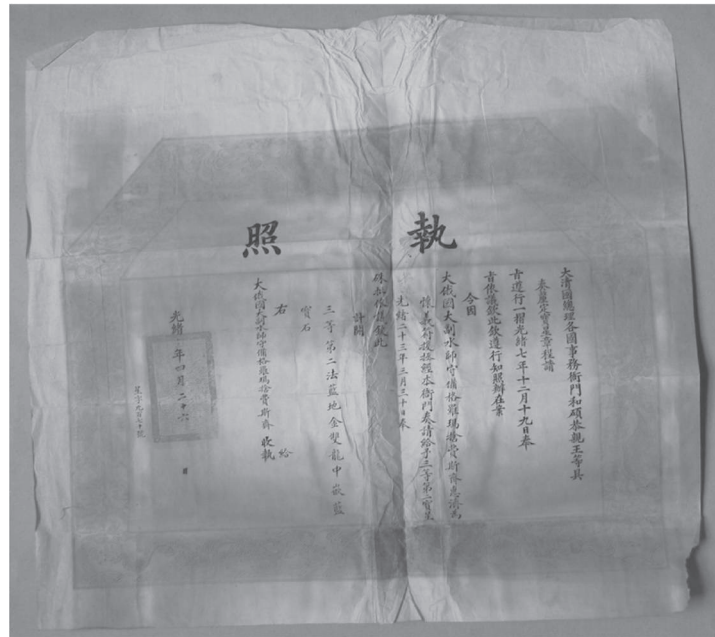 執照
大清國總理各國事務衙門和碩恭親王等具
奏釐定寶星章程請
旨遵行一摺光緒七年十二月十九日奉
旨依議欽此欽遵行知照辦在案
今因
大俄國大副水師守備格羅瑪
慷義前後經本衙門奏請給予三等第二寶星
光緒二十三年三月三十日奉
硃批依議欽此
計開
三等第二法藍地金雙龍中嵌藍
寶石
右 給
大俄國大副水師守備格羅瑪 收執
光緒 年四月二十六
星字九百六十號